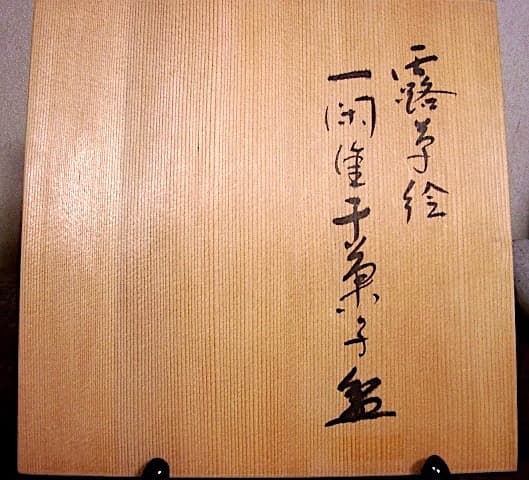 露草絵
一閑塗干菓子盆